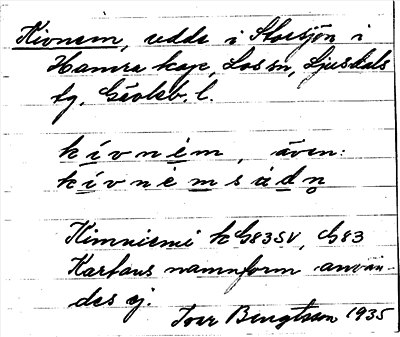 Kivnem, udde i Storsjön i
Hamra kap, Los sn, Ljusdals
tg, Gävleb. l.
kívném, även:
kívnémsúdn̥
Kimniemi k G83SV, G83
Kartans namnform använ-
des ej.
Ivar Bengtsson 1935